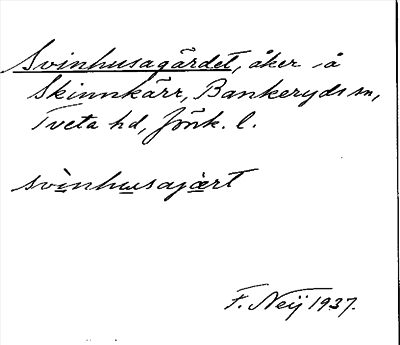 Svinhusagärdet, åker å
Skinnkärr, Bankeryds sn,
Tveta hd, Jönk. l.
svìnhusajært
F. Neij 1937.